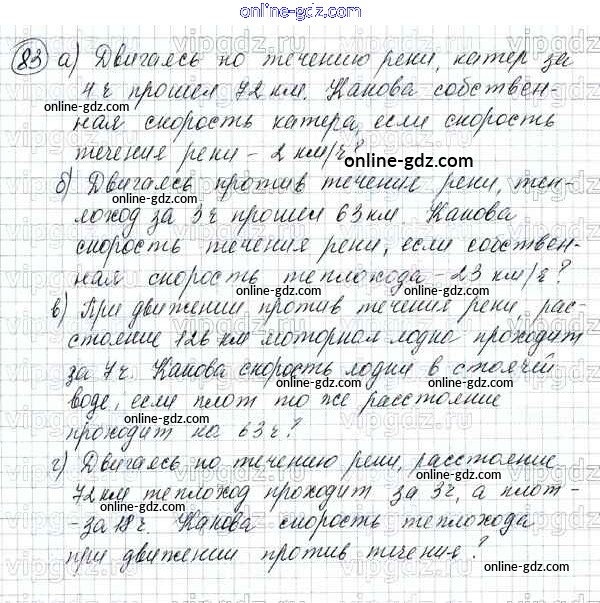 online-gdz.com
83 а) Двигаясь по течению реки, катер за
4 ч прошел 72 км. Какова собствен-
online-gdz.com
ная скорость катера, если скорость
течения реки - 2 км/ч?
online-gdz.com
б) Двигаясь против течение реки, теп-
лоход за 3 ч прошел 63 км. Какова
online-gdz.com
скорость течения реки, если собствен-
ная скорость теплохода - 23 км/ч?
online-gdz.com online-gdz.com
в) При движении против течения реки рас-
стояние 126 км моторная лодка проходит
online-gdz.com
за 7 ч. Какова скорость лодки в стоячей
online-gdz.com online-gdz.com
воде, если плот то же расстояние
online-gdz.com
проходит на 63 ч?
online-gdz.com
г) Двигаясь по течению реки, расстояние
online-gdz.com
72 км теплоход проходит за 3 ч, а плот -
online-gdz.com
- за 18 ч. Какова скорость теплохода
online-gdz.com
при движении против течения?
online-gdz.com